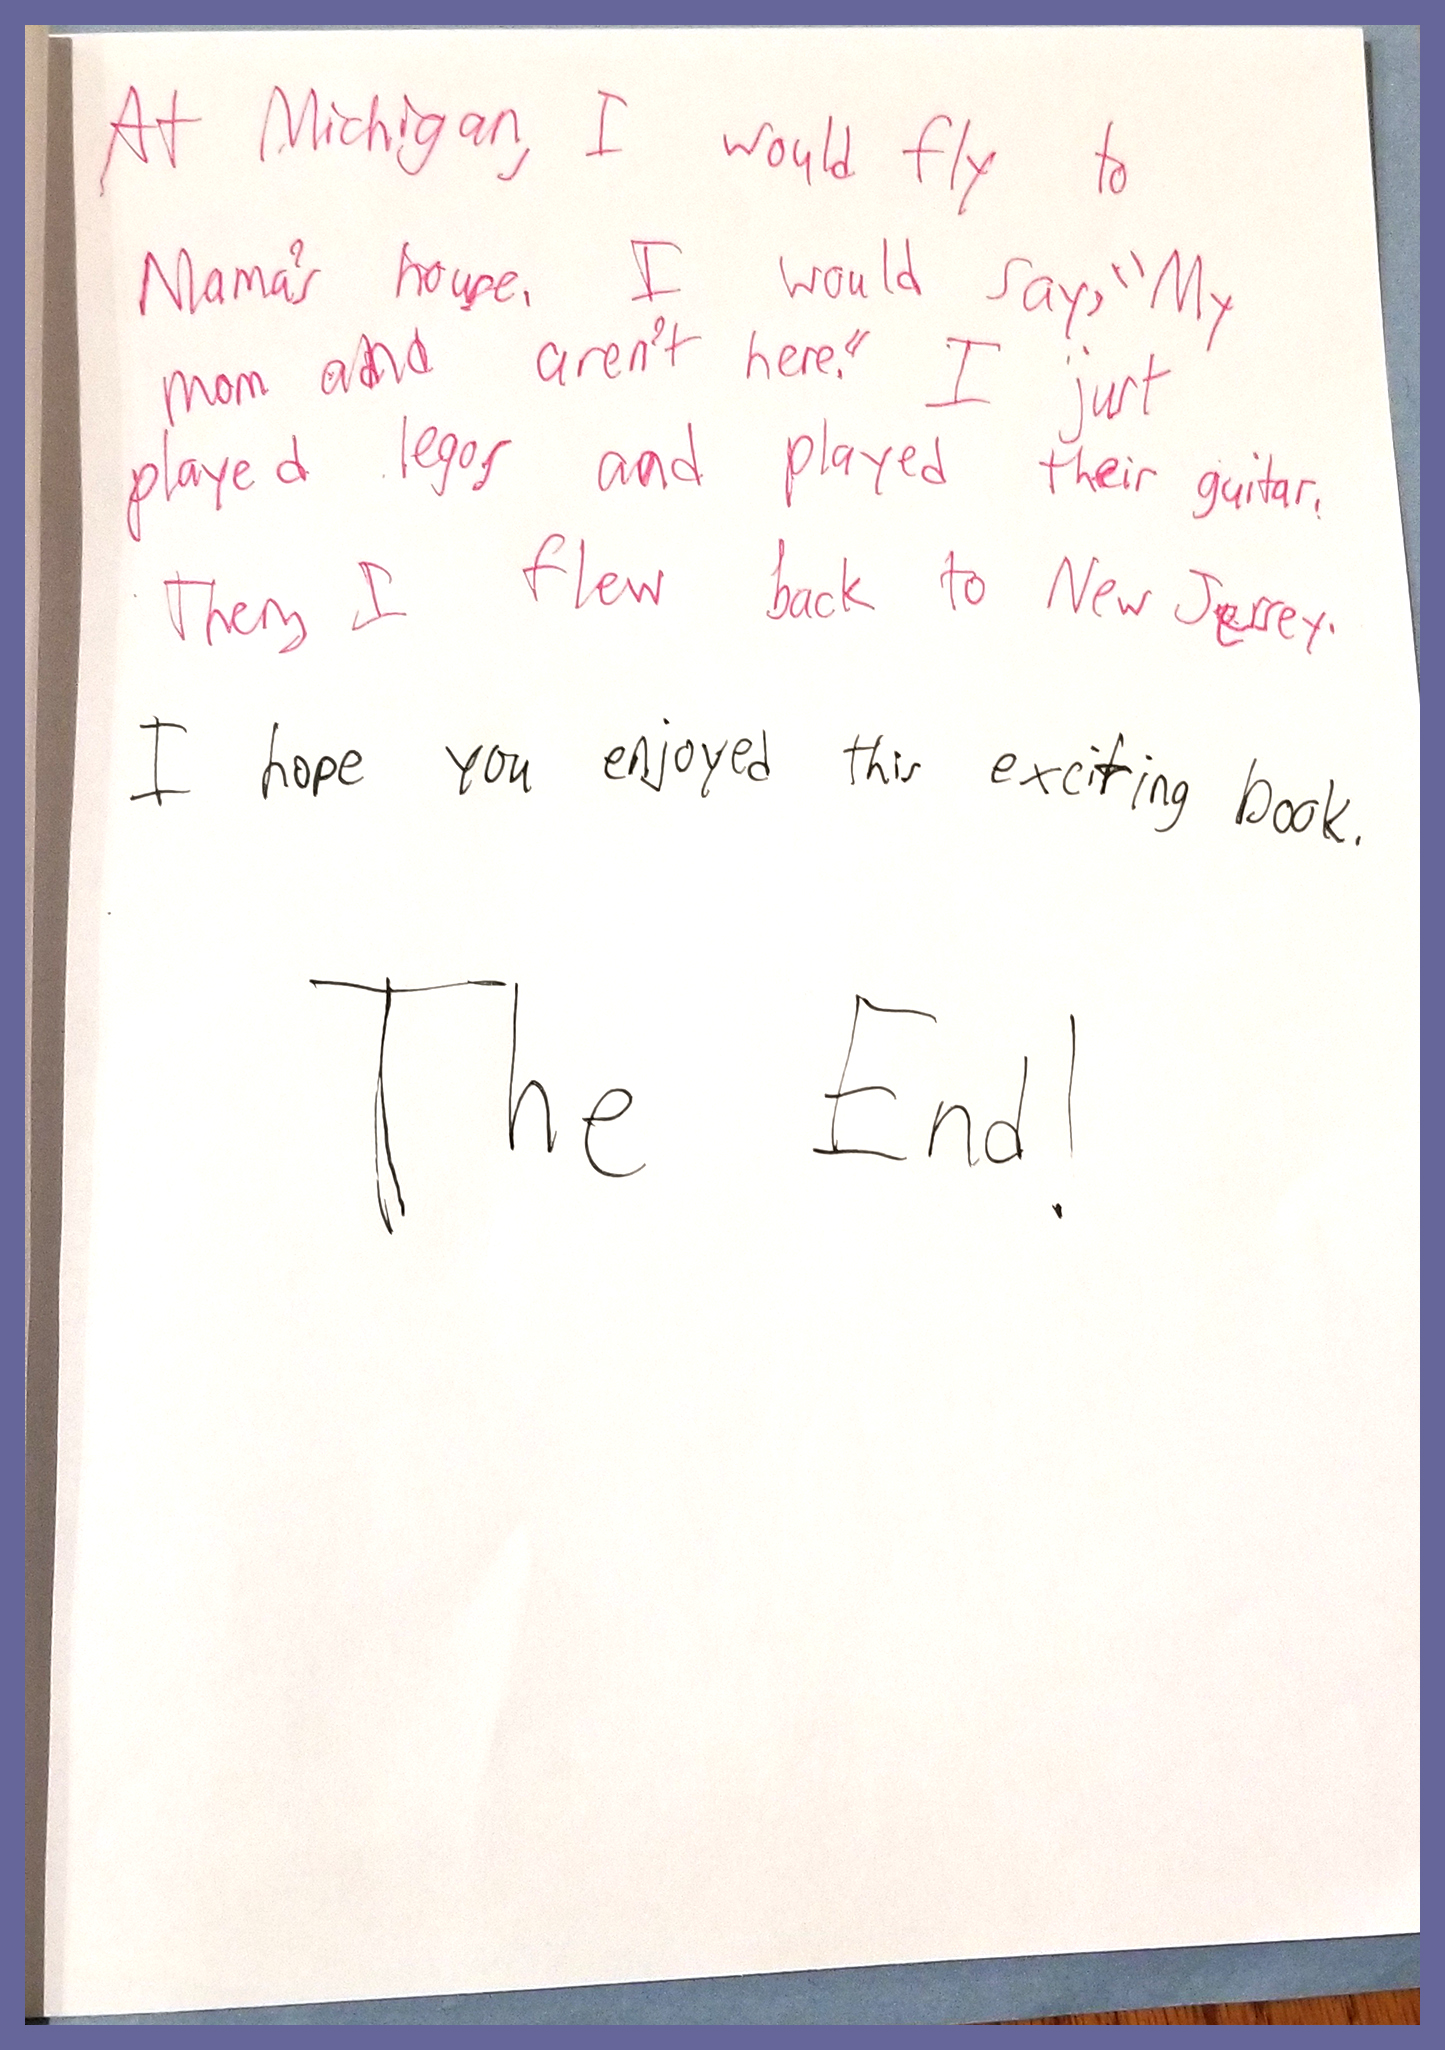 At Michigan, I would fly to
Mama's house. I would say, "My
mom and aren't here." I just
played legos and played their guitar.
Then, I flew back to New Jersey.
I hope you enjoyed this exciting book.
The End!